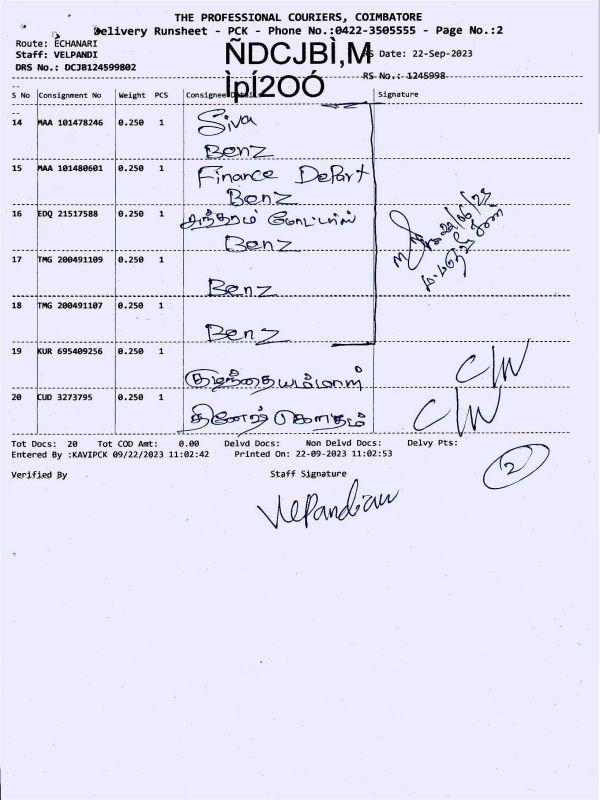 THE PROFESSIONAL COURIERS, COIMBATORE
Delivery Runsheet - PCK - Phone No.:0422-3505555 - Page No.:2
Route: ECHANARI
Staff: VELPANDI
ÑDCJBÌ,M
RS Date: 22-Sep-2023
DRS No.: DCJB124599802
ÌpÍ2OÓ
RS No.: 1245998
S No Consignment No Weight PCS Consignee Details Signature
14 MAA 101478246 0.250 1 Siva
Benz
15 MAA 101480601 0.250 1 Finance Depart
Benz
16 EDQ 21517588 0.250 1
Benz
17 TMG 200491109 0.250 1
Benz
18 TMG 200491107 0.250 1
Benz
19 KUR 695409256 0.250 1
C/W
20 CUD 3273795 0.250 1
C/W
Tot Docs: 20 Tot COD Amt: 0.00 Delvd Docs: Non Delvd Docs: Delvy Pts:
Entered By :KAVIPCK 09/22/2023 11:02:42 Printed On: 22-09-2023 11:02:53
2
Verified By Staff Signature
Velpandian